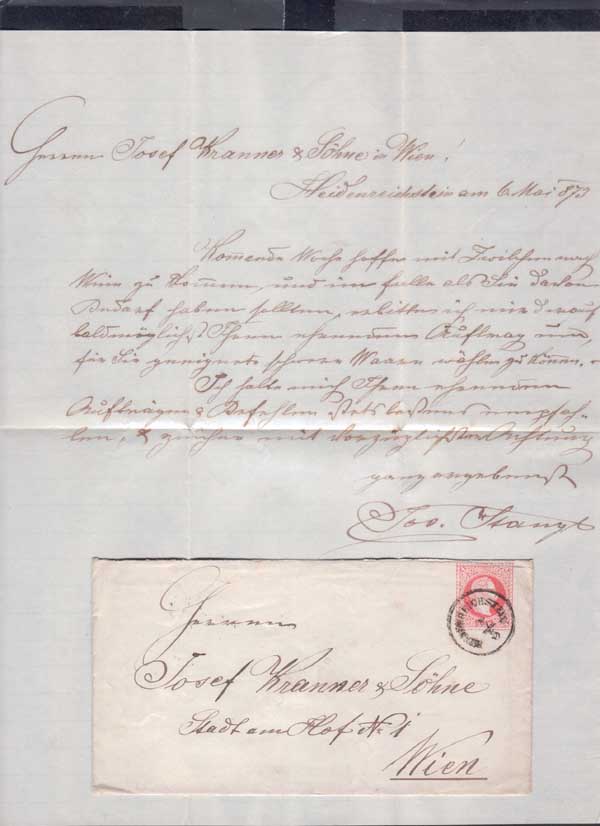 Herren Josef Kranner & Söhne in Wien!
Heidenreichstein am 6. Mai 873
Kommende Woche hoffe mit Zwilchen nach
Wien zu kommen, und im falle als Sie davon
Bedarf haben sollten, erbitte ich mir darauf
baldmöglichst Ihren ehrenden Auftrag um,
für Sie geeignete schwere Waare wählen zu können.
Ich halte mich Ihren ehrenden
Aufträgen & Befehlen stets bestens empfoh-
len, & zeichne mit vorzüglichster Achtung
ganz ergebenst
Stangl
HEIDENREICHSTEIN
Herren
Josef Kranner & Söhne
Stadt am Hof No 1
Wien